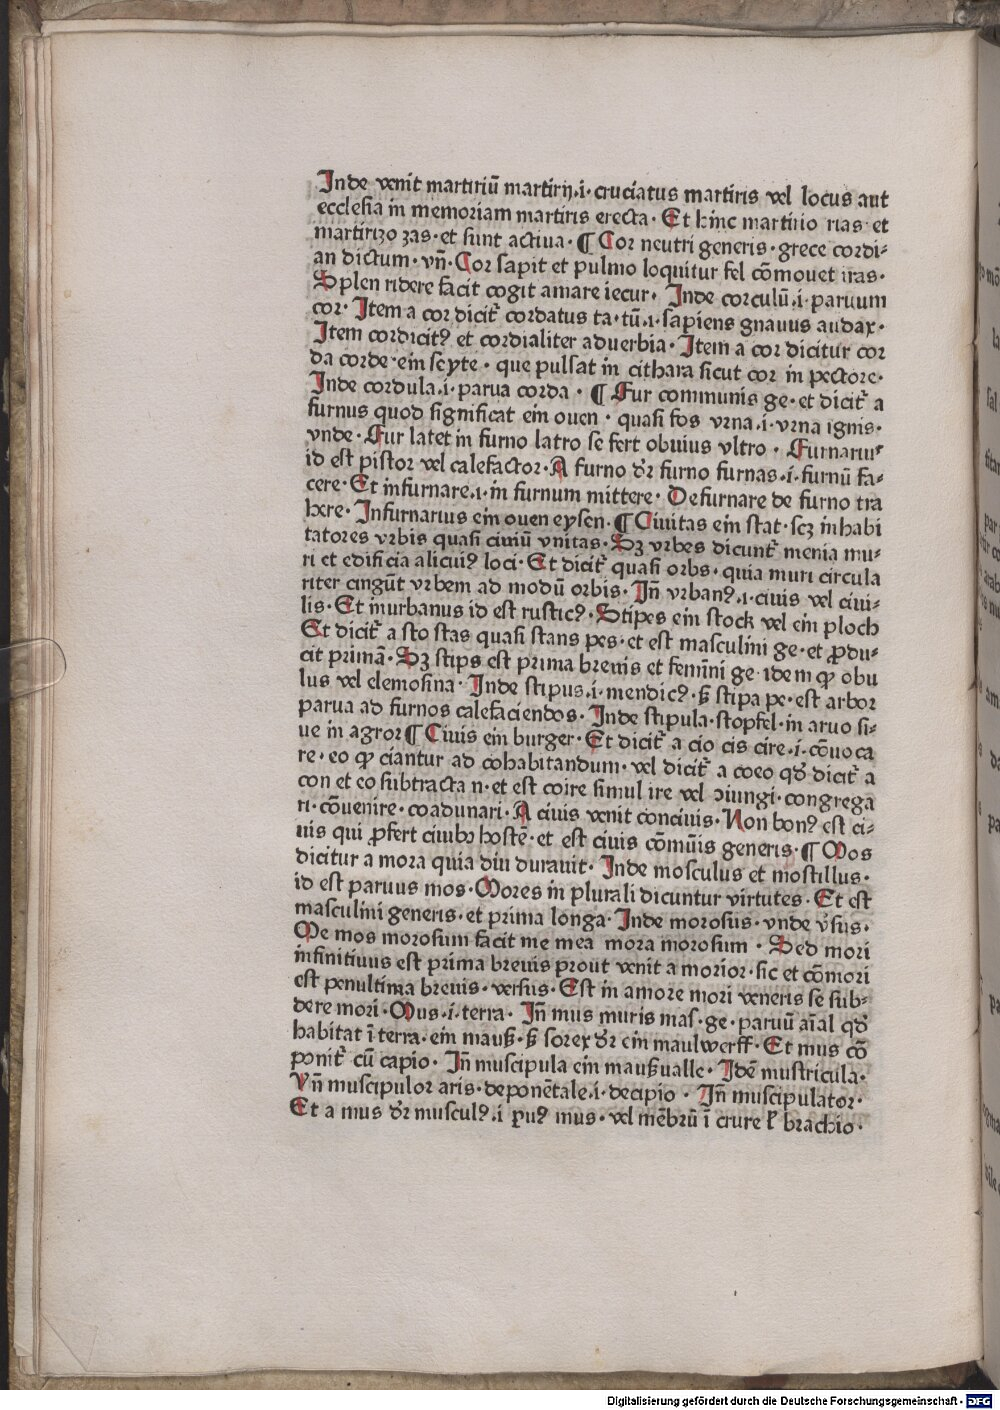 Inde venit martiriū martirij·i· cruciatus martiris vel locus aut
ecclesia in memoriam martiris erecta· Et hinc martirio rias· et
martirizo zas· et sunt actiua· ¶ Cor neutri generis· grece cordi⸗
an dictum· vn̄· Cor sapit et pulmo loquitur fel cōmouet iras·
Splen ridere facit cogit amare iecur· Inde corculū·i· paruum
cor· Item a cor dicit᷑ cordatus ta·tū·i· sapiens gnauus audax·
Item cordicitꝰ et cordialiter aduerbia· Item a cor dicitur cor
da corde· ein seyte· que pulsat in cithara sicut cor in pectore·
Inde cordula·i· parua corda· ¶ Fur communis ge· et dicit᷑ a
furnus quod significat ein ouen· quasi fos vrna·i· vrna ignis·
vnde· Fur latet in furno latro se fert obuius vltro· Furnarius
id est pistor vel calefactor· A furno dr̄ furno furnas·i· furnū fa⸗
cere· Et infurnare·i· in furnum mittere· Defurnare de furno tra
here· Infurnarius ein ouen eysen· ¶ Ciuitas ein stat· scꝫ inhabi
tatores vrbis quasi ciuiū vnitas· Sꝫ vrbes dicunt᷑ menia mu⸗
ri et edificia alicuiꝰ loci· Et dicit᷑ quasi orbs· quia muri circula
riter cingūt vrbem ad modū orbis· In̄ vrbanꝰ·i· ciuis vel ciui⸗
lis· Et inurbanus id est rusticꝰ· Stipes ein stock vel ein ploch
Et dicit᷑ a sto stas quasi stans pes· et est masculini ge· et ꝓdu⸗
cit primā· Sꝫ stips est prima breuis et feminī ge· idem ꝙ obu
lus vel elemosina· Inde stipus·i· mendicꝰ· ß stipa pe· est arbor
parua ad furnos calefaciendos· Inde stipula· stopfel· in aruo si⸗
ue in agroꝛ ¶ Ciuis ein burger· Et dicit᷑ a cio cis cire·i· cōuoca
re· eo ꝙ ciantur ad cohabitandum· vel dicit᷑ a coeo qd̄ dicit᷑ a
con et eo subtracta n· et est coire simul ire vel ↄiungi· congrega
ri· cōuenire· coadunari· A ciuis venit conciuis· Non bonꝰ est ci⸗
uis qui ꝓfert ciuibꝫ hostē· et est ciuis cōmūis generis· ¶ Mos
dicitur a mora quia diu durauit· Inde mosculus et mostillus·
id est paruus mos· Mores in plurali dicuntur virtutes· Et est
masculini generis· et prima longa· Inde morosus· vnde v̓sus·
Me mos morosum facit me mea mora morosum· Sed mori
infinitiuus est prima breuis prout venit a morior· sic et cōmori
est penultima breuis· versus· Est in amore mori veneris se sub⸗
dere mori· Mus·i· terra· In̄ mus muris mas· ge· paruū aīal qd̄
habitat ī terra· ein mauß· ß sorex dr̄ ein maulwerff· Et mus cō
ponit᷑ cū capio· In̄ muscipula ein maußualle· Idē mustricula·
Vn̄ muscipulor aris· deponētale·i· decipio· In̄ muscipulator·
Et a mus dr̄ musculꝰ·i· ꝑuꝰ mus· vel mēbrū ī crure ł brachio·
Digitalisierung gefördert durch die Deutsche Forschungsgemeinschaft · DFG